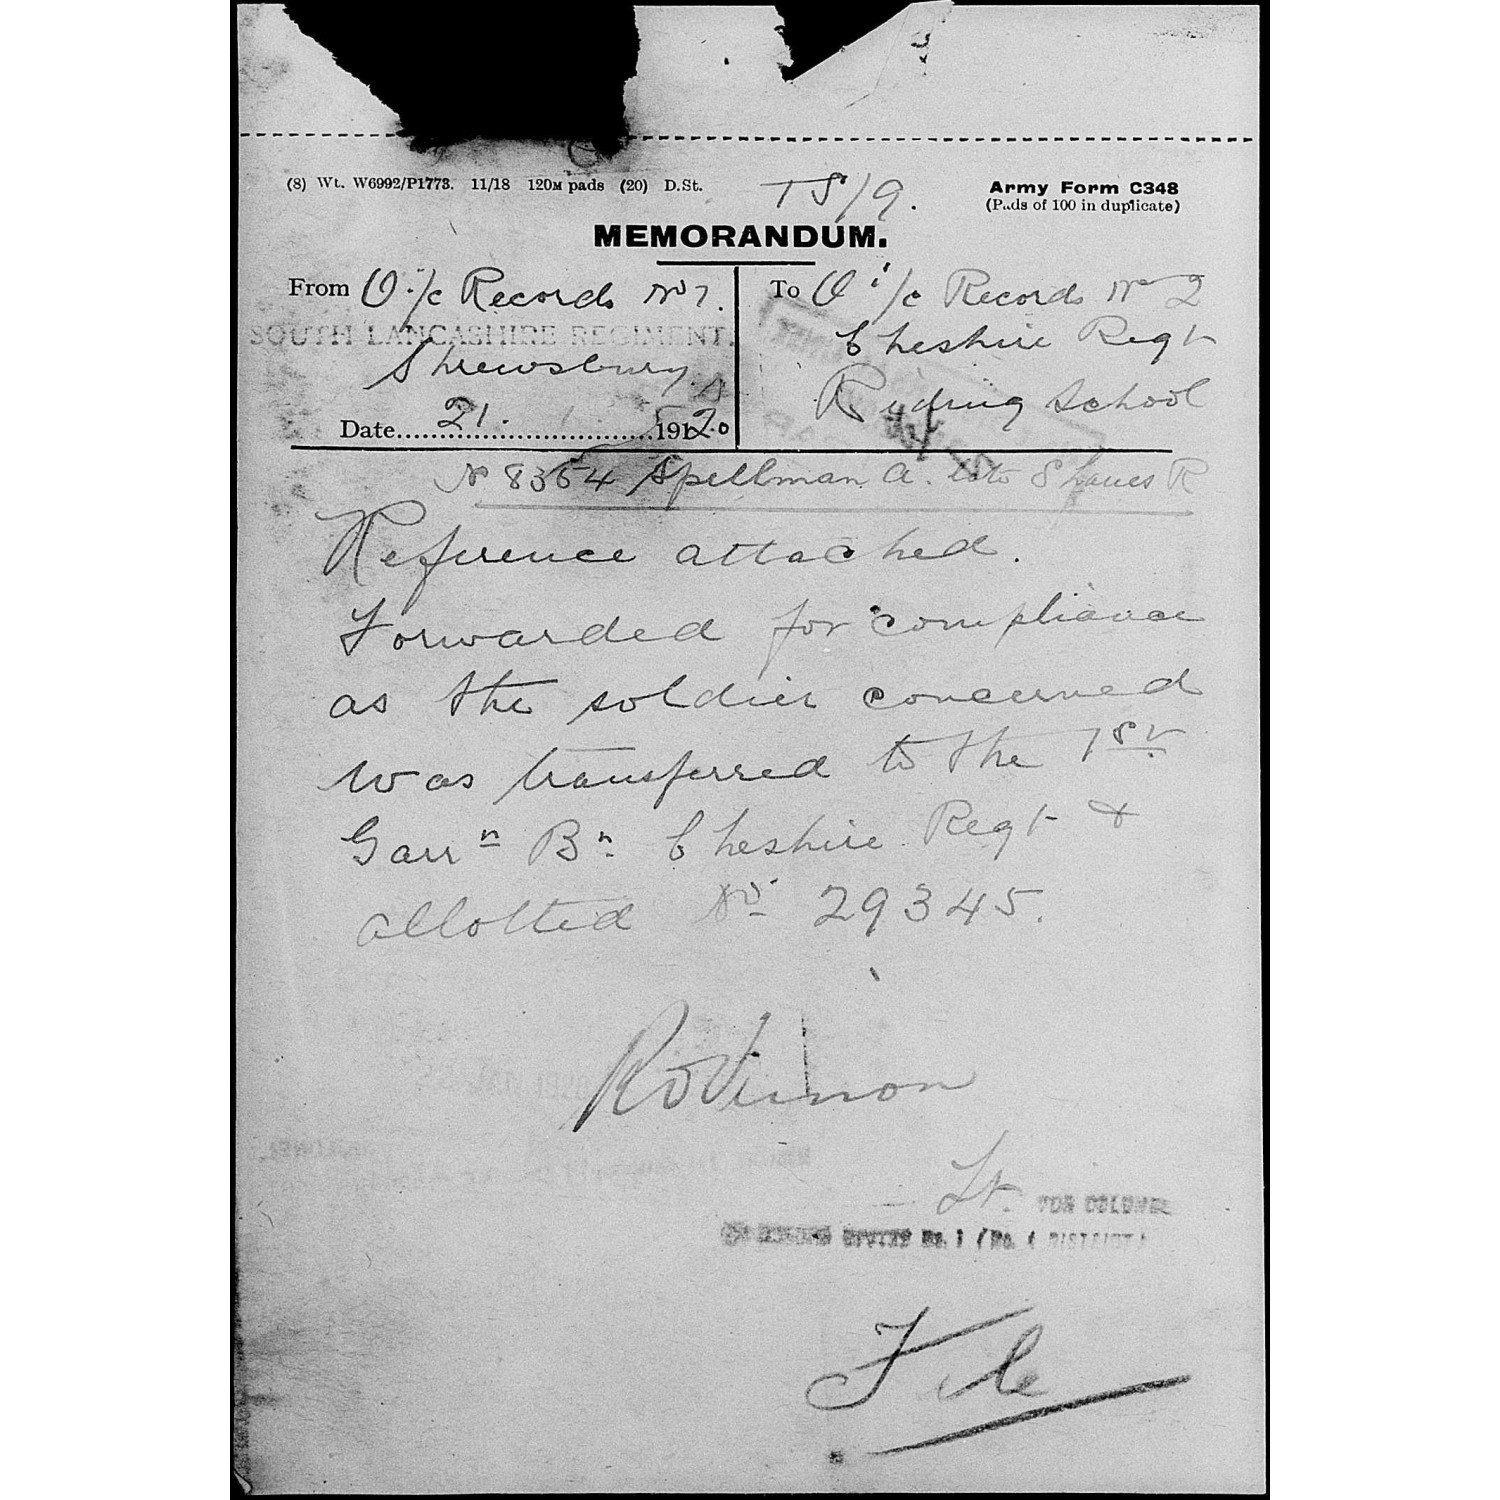 (8) Wt. W6992/P1773. 11/18 120M pads (20) D.St.
TS/9.
Army Form C348
(Pads of 100 in duplicate)
MEMORANDUM.
From O.i/c Records No 1.
SOUTH LANCASHIRE REGIMENT.
Shrewsbury
Date 21. 1920
To O i/c Records No 2
Cheshire Regt
Riding School
No 8364 Spellman A. late S Lancs R
Reference attached.
Forwarded for compliance
as the soldier concerned
was transferred to the 1st
Garrn Bn. Cheshire Regt &
allotted No 29345.
Lt. FOR COLONEL
No. 1 (No. 4 DISTRICT)
File